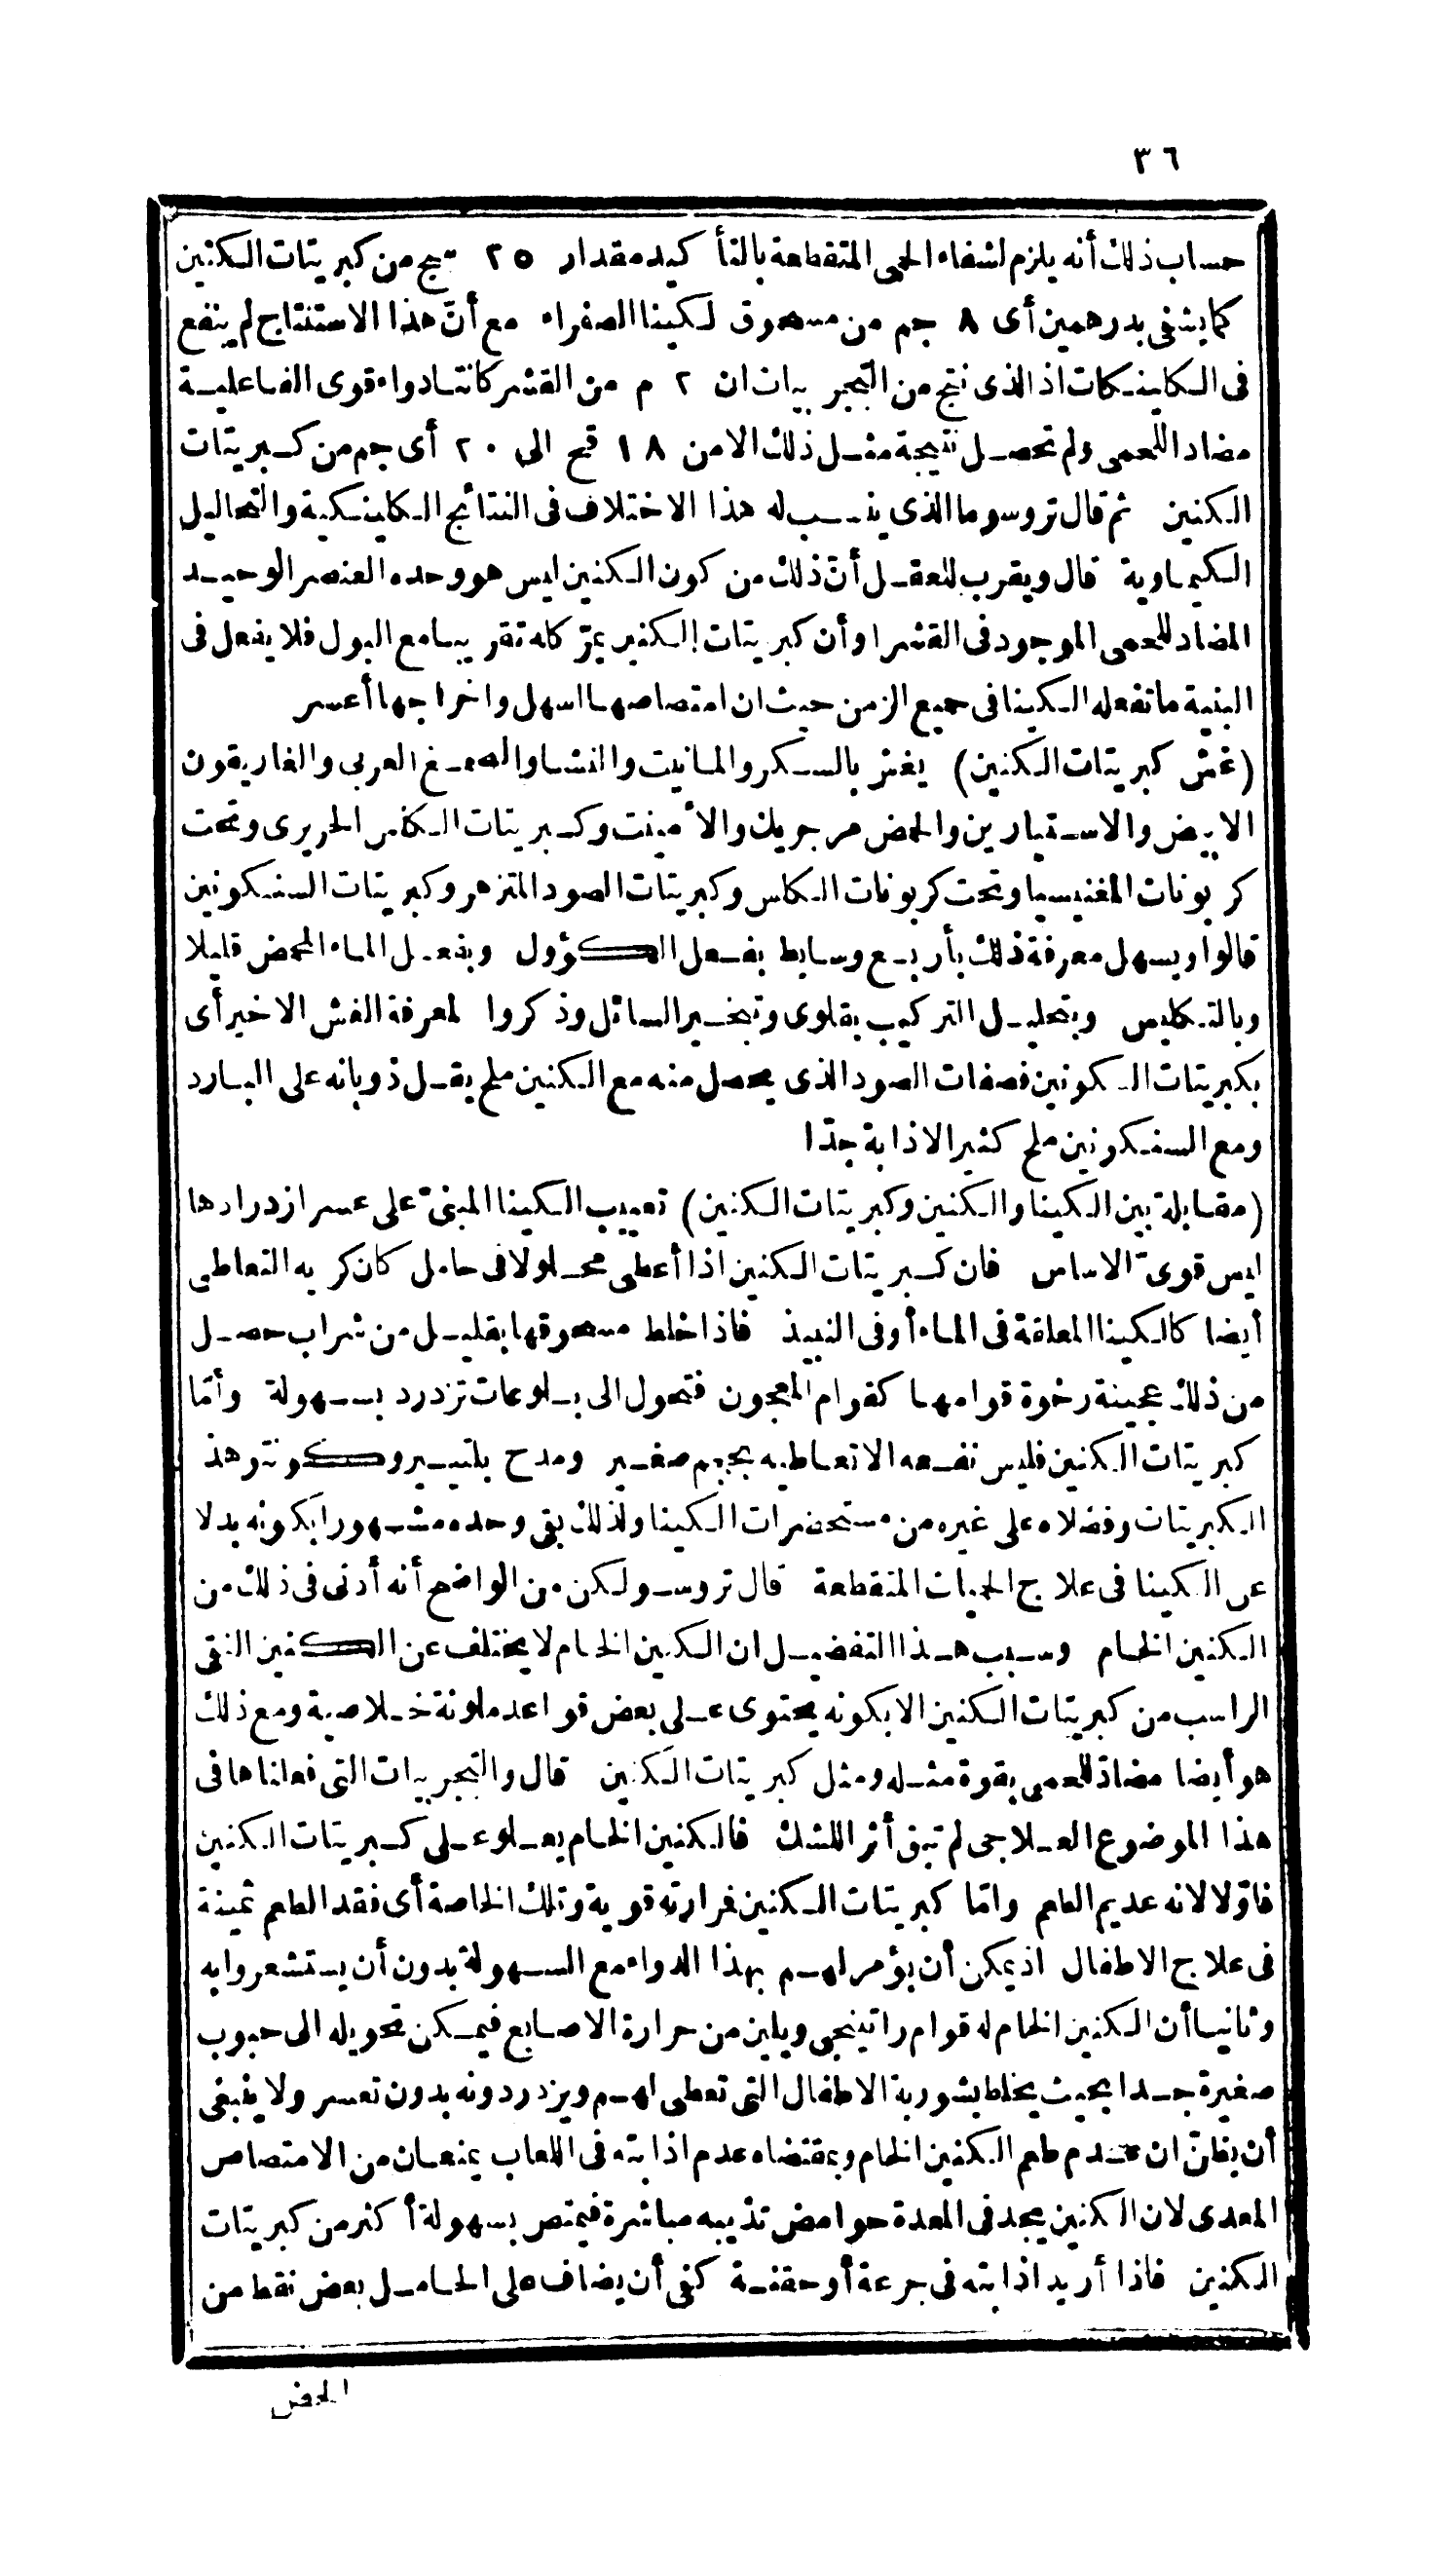 ٣٦
حساب ذلك أنه يلزم لشفاء الحمى المتقطعة بالتأكيد مقدار ٢٥ سج من كبريتات الكنين
كما يشفى بدرهمين أى ٨ جم من مسحوق لكينا الصفراء مع أنّ هذا الاستنتاج لم ينفع
فى الكلينكات اذ الذى نتج من التجربيات ان ٢ م من القشر كانتا دواء قوى الفاعلية
مضادا للحمى ولم تحصل نتيجة مثل ذلك الا من ١٨ قمح الى ٢٠ أى جم من كبريتات
الكنين ثم قال تروسو ما الذى ينسب له هذا الاختلاف فى النتائج الكلينكية والتحاليل
الكيماوية قال ويقرب للعقل أنّ ذلك من كون الكنين ليس هو وحده العنصر الوحيد
المضاد للحمى الموجود فى القشر او أن كبريتات الكنين يمرّ كله تقريبا مع البول فلا يفعل فى
البنية ما تفعله الكينا فى جميع الزمن حيث ان امتصاصها اسهل واخراجها أعسر
(غش كبريتات الكنين) يغش بالسكر والمانيت والنشا والصمغ العربى والغاريقون
الابيض والاستيارين والحمض مرجريك والأمينت وكبريتات الكلس الحريرى وتحت
كربونات المغنيسيا وتحت كربونات الكلس وكبريتات الصود المتزهر وكبريتات السنكونين
قالوا ويسهل معرفة ذلك بأربع وسايط بفعل الكؤول وبفعل الماء المحمض قليلا
وبالتكليس وبتحليل التركيب بقلوى وتبخير السائل وذكروا لمعرفة الغش الاخير أى
بكبريتات الكونين فصفات الصود الذى يحصل منه مع الكنين ملح يقل ذوبانه على البارد
ومع السنكونين ملح كثير الاذابة جدّا
(مقابلة بين الكينا والكنين وكبريتات الكنين) تعييب الكينا المبنىّ على عسر ازدرادها
ليس قوىّ الاساس فان كبريتات الكنين اذا أعطى محلولا فى حامل كان كريه التعاطى
أيضا كالكينا المعلقة فى الماء أو فى النبيذ فاذا خلط مسحوقها بقليل من شراب حصل
من ذلك عجينة رخوة قوامها كقوام المعجون فتحول الى بلوعات تزدرد بسهولة وأمّا
كبريتات الكنين فليس نفعه الا تعاطيه بحجم صغير ومدح بلتيير وكونتو هذ
الكبريتات وفضلاه على غيره من مستحضرات الكينا ولذلك بقى وحده مشهورا بكونه بدلا
عن الكينا فى علاج الحميات المتقطعة قال تروسو لكن من الواضح أنه أدنى فى ذلك من
الكنين الخام وسبب هذا التفضيل ان الكنين الخام لا يختلف عن الكنين النقى
الراسب من كبريتات الكنين الا بكونه يحتوى على بعض قواعد ملونة خلاصية ومع ذلك
هو أيضا مضادّ للحمى بقوة مثله ومثل كبريتات الكنين قال والتجربيات التى فعلناها فى
هذا الموضوع العلاجى لم تبق أثرا للشك فالكنين الخام يعلو على كبريتات الكنين
فاوّلا لانه عديم الطعم وامّا كبريتات الكنين فمرارته قوية وتلك الخاصة أى فقد الطعم ثمينة
فى علاج الاطفال اذ يمكن أن يؤمر لهم بهذا الدواء مع السهولة بدون أن يستشعروا به
وثانيا أن الكنين الخام له قوام راتينجى ويلين من حرارة الاصابع فيمكن تحويله الى حبوب
صغيرة جدا بحيث يخلط بشوربة الاطفال التى تعطى لهم ويزدردونه بدون تعسر ولا ينبغى
أن يظنّ ان عدم طعم الكنين الخام وبمقتضاه عدم اذابته فى اللعاب يمنعان من الامتصاص
المعدى لان الكنين يجد فى المعدة حوامض تذيبه مباشرة فيمتص بسهولة أكثر من كبريتات
الكنين فاذا أريد اذابته فى جرعة أو حقنة كفى أن يضاف على الحامل بعض نقط من
الحمض